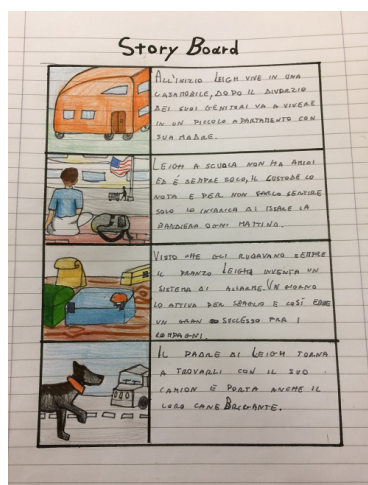 Story Board
All'inizio Leigh vive in una
casamobile, dopo il divorzio
dei suoi genitori va a vivere
in un piccolo apartamento con
sua madre.
Leigh a scuola non ha amici
ed é sempre solo, il custode lo
nota e per non farlo sentire
solo lo incarica di issare la
bandiera ogni mattina.
Visto che gli rubavano sempre
il pranzo Leigh inventa un
sistema di allarme. Un giorno
lo attiva per sbaglio e cosí ebbe
un gran successo fra i
compagni.
Il padre di Leigh torna
a trovarli con il suo
camion e porta anche il
loro cane Brigante.